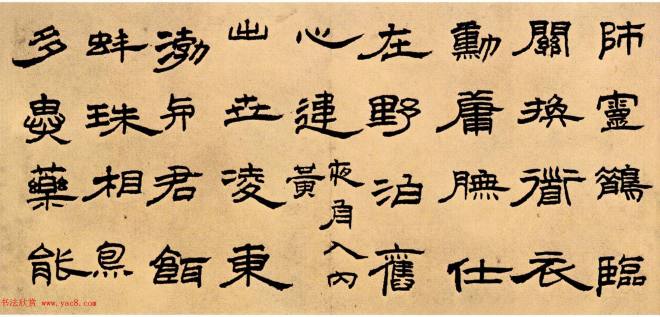 師靈臨
關換道衣
勳庸膴仕
在野泊舊
心黃
夜入內
出世凌東
渤君餌
蚌珠相
多藥能
书法欣赏 www.yac8.com